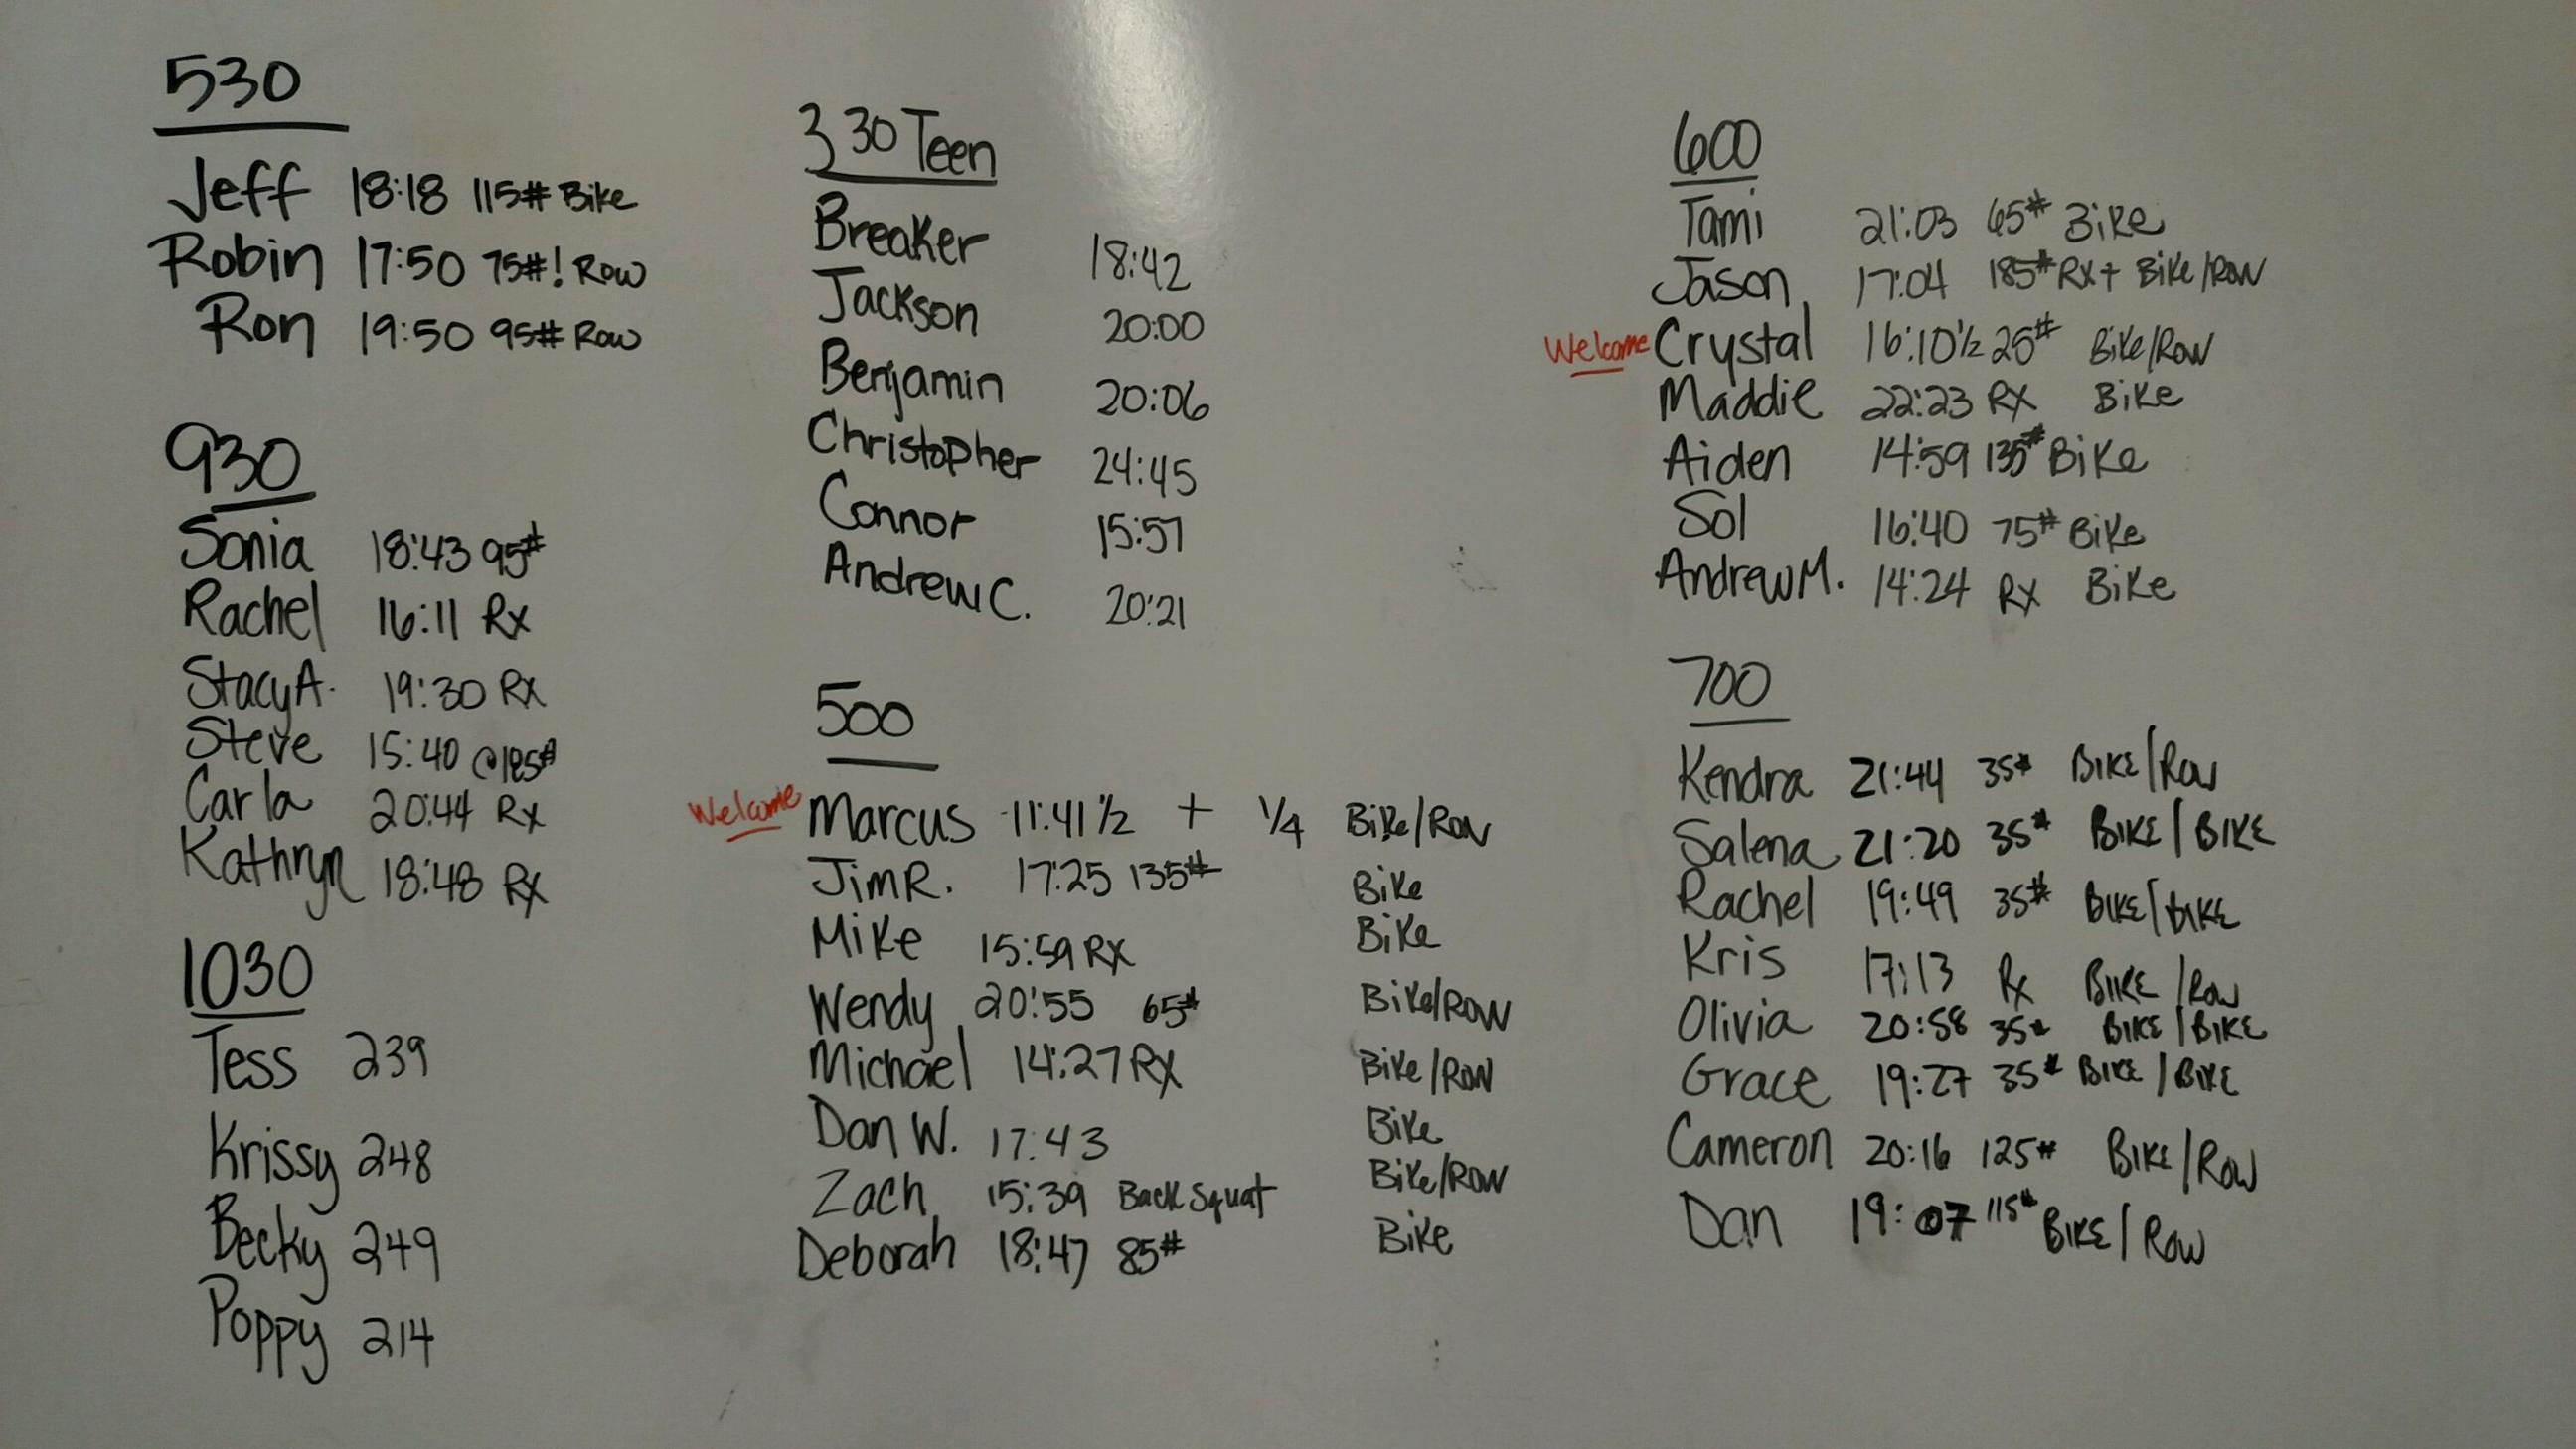 530
Jeff 18:18 115# Bike
Robin 17:50 75#! Row
Ron 19:50 95# Row
930
Sonia 18:43 95#
Rachel 16:11 Rx
Stacy A. 19:30 Rx
Steve 15:40 @185#
Carla 20:44 Rx
Kathryn 18:48 Rx
1030
Tess 239
Krissy 248
Becky 249
Poppy 214
330 Teen
Breaker 18:42
Jackson 20:00
Benjamin 20:06
Christopher 24:45
Connor 15:57
Andrew C. 20:21
500
Welcome Marcus 11:41 1/2 + 1/4 Bike/Row
Jim R. 17:25 135# Bike
Mike 15:59 Rx Bike
Wendy 20:55 65# Bike/Row
Michael 14:27 Rx Bike/Row
Dan W. 17:43 Bike
Zach 15:39 Back Squat Bike/Row
Deborah 18:47 85# Bike
600
Tami 21:03 65# Bike
Jason 17:04 185# Rx+ Bike/Row
Welcome Crystal 16:10 1/2 25# Bike/Row
Maddie 22:23 Rx Bike
Aiden 14:59 135# Bike
Sol 16:40 75# Bike
Andrew M. 14:24 Rx Bike
700
Kendra 21:44 35# BIKE/Row
Salena 21:20 35# BIKE/BIKE
Rachel 19:49 35# BIKE/BIKE
Kris 17:13 Rx BIKE/Row
Olivia 20:58 35# BIKE/BIKE
Grace 19:27 35# BIKE/BIKE
Cameron 20:16 125# BIKE/Row
Dan 19:07 115# BIKE/Row